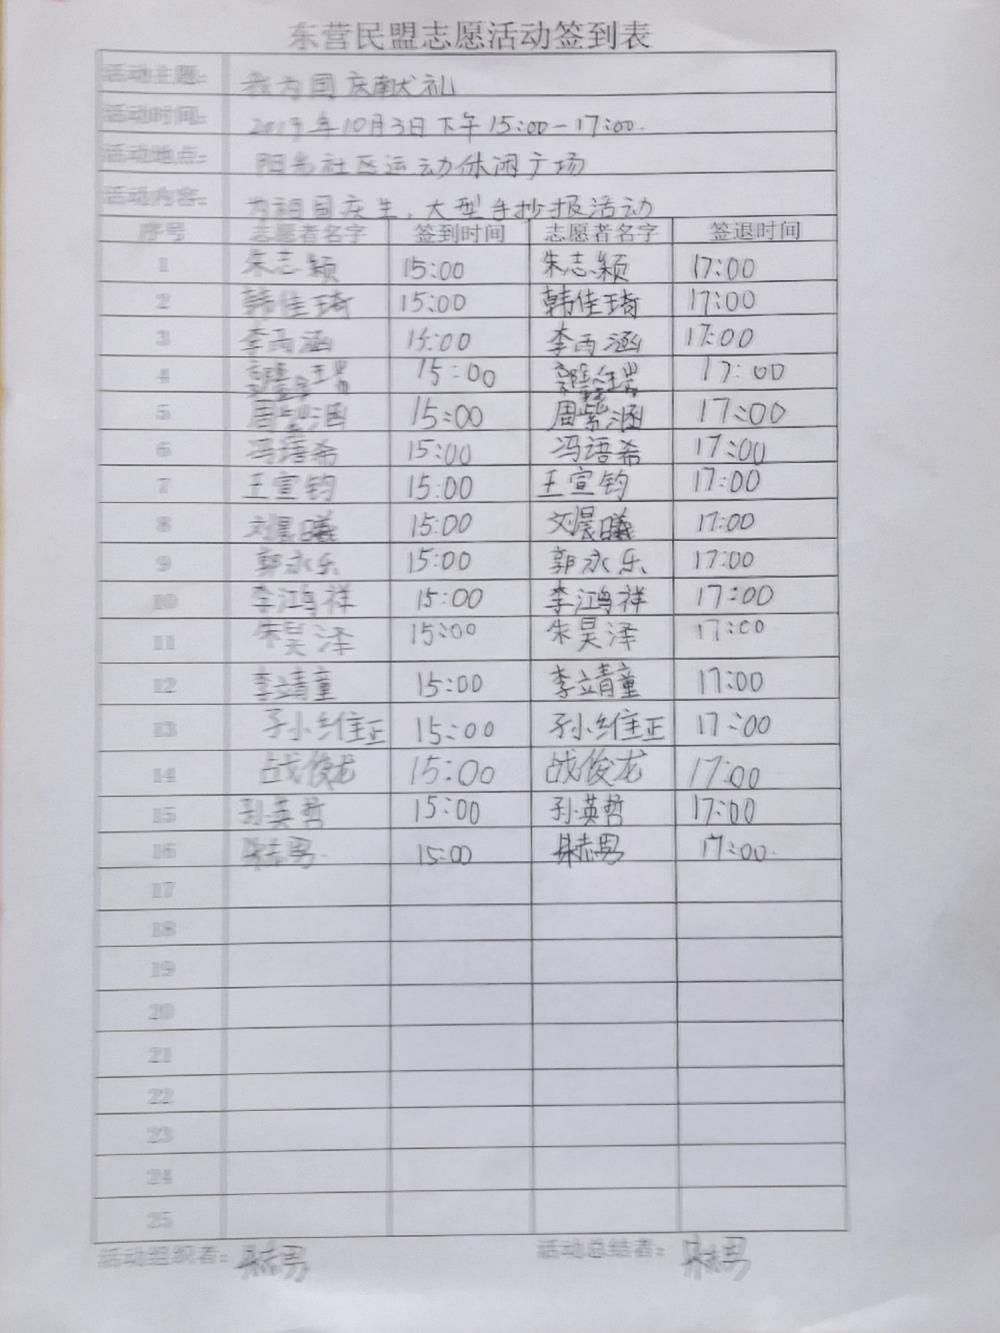 东营民盟志愿活动签到表
活动主题： 我为国庆献礼
活动时间： 2019年10月3日下午15:00-17:00.
活动地点： 阳光社区运动休闲广场
活动内容： 为祖国庆生，大型手抄报活动
序号 志愿者名字 签到时间 志愿者名字 签退时间
1 朱志颖 15:00 朱志颖 17:00
2 韩佳琦 15:00 韩佳琦 17:00
3 李雨涵 15:00 李雨涵 17:00
4 15:00 17:00
5 周紫涵 15:00 周紫涵 17:00
6 冯语希 15:00 冯语希 17:00
7 王宣钧 15:00 王宣钧 17:00
8 刘晨曦 15:00 刘晨曦 17:00
9 郭永乐 15:00 郭永乐 17:00
10 李鸿祥 15:00 李鸿祥 17:00
11 朱昊泽 15:00 朱昊泽 17:00
12 李靖童 15:00 李靖童 17:00
13 15:00 17:00
14 战俊龙 15:00 战俊龙 17:00
15 孙英哲 15:00 孙英哲 17:00
16 15:00 17:00.
17
18
19
20
21
22
23
24
25
活动组织者： 活动总结者：